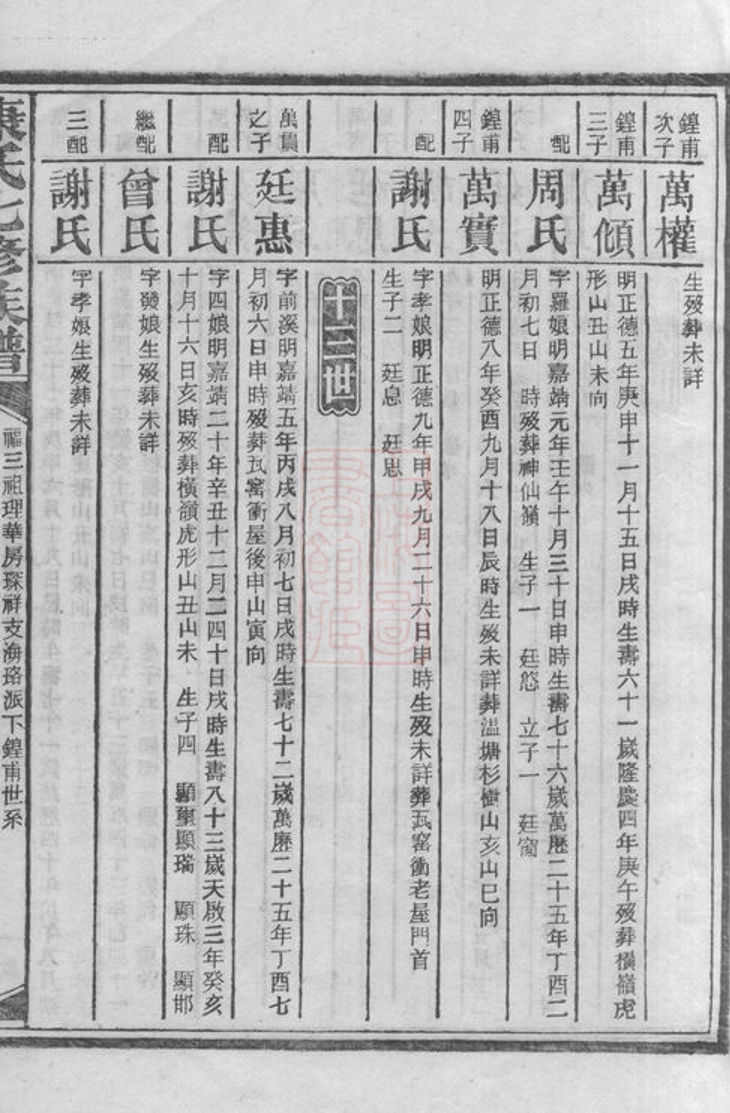 鍠甫次子
萬權
生歿葬未詳
鍠甫三子
萬傾
明正德五年庚申十一月十五日戌時生壽六十一嵗隆慶四年庚午歿葬橫嶺虎
形山丑山未向
配
周氏
字羅娘明嘉靖元年壬午十月三十日申時生壽七十六嵗萬歷二十五年丁酉二
月初七日 時歿葬神仙嶺 生子一 廷悠 立子一
鍠甫四子
萬實
明正德八年癸酉九月十八日辰時生歿未詳葬溫塘杉樹山亥山巳向
配
謝氏
字孝娘明正德九年甲戌九月二十六日申時生歿未詳葬瓦窰衝老屋門首
生子二 廷息 廷思
十三世
萬貫之子
廷惠
字前溪明嘉靖五年丙戌八月初七日戌時生壽七十二嵗萬歷二十五年丁酉七
月初六日申時歿葬瓦窰衝屋後申山寅向
配
謝氏
字四娘明嘉靖二十年辛丑十二月二四十日戌時生壽八十三嵗天啟三年癸亥
十月十六日亥時歿葬橫嶺虎形山丑山未 生子四 顯聖顯瑞 顯珠 顯邯
繼配
曾氏
字發娘生歿葬未詳
三配
謝氏
字孝娘生歿葬未詳
康氏七修族譜
福三祖理華房琛祥支海珞派下鍠甫世系